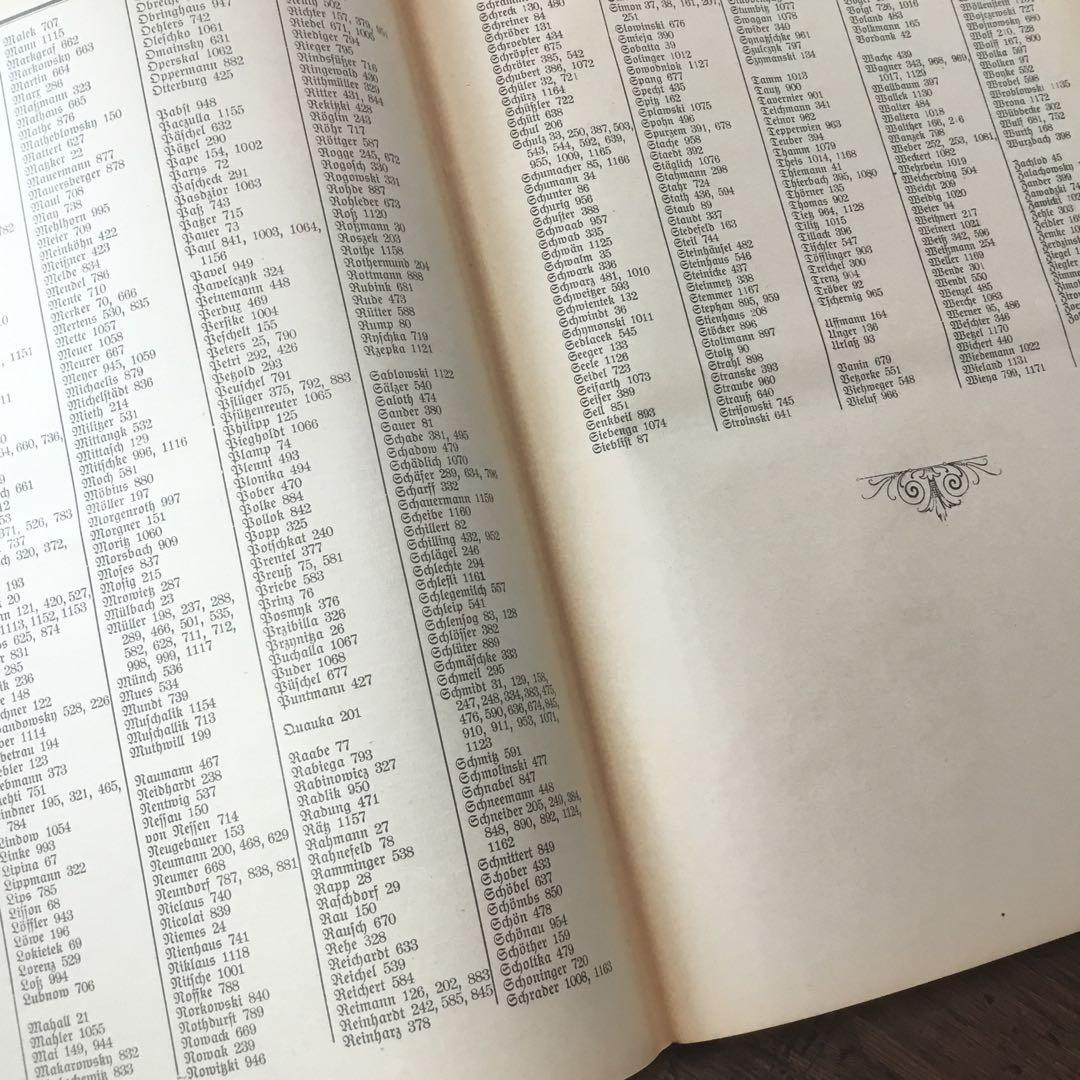 Malek 707
Mann 1115
Markgraf 662
Markowsky 663
Marx 286
Maßmann 323
Mathaus 665
Mathe 876
Matheblowsky 150
Mattert 627
Matzker 22
Mauermann 877
Mauersberger 878
Maul 708
May 738
Mehlhorn 995
Meier 709
Meinköhn 422
Meißner 423
Melde 834
Mendel 786
Mente 710
Merker 70, 666
Mertens 530, 835
Mette 1057
Meuer 1058
Meurer 667
Meyer 945, 1059
Michaelis 879
Michelstädt 836
Mieth 214
Militzer 531
Mittangk 532
Mittasch 129
Mitschke 996, 1116
Moch 581
Möbius 880
Möller 197
Morgenroth 997
Morgner 151
Moritz 1060
Morsbach 909
Moses 837
Mosig 215
Mrowietz 287
Mülbach 23
Müller 198, 237, 288,
289, 466, 501, 535,
582, 628, 711, 712,
998, 999, 1117
Münch 536
Mues 534
Mundt 739
Muschalik 1154
Muschallik 713
Muthwill 199
Naumann 467
Neidhardt 238
Nentwig 537
Nessau 150
von Nessen 714
Neugebauer 153
Neumann 200, 468, 629
Neumer 668
Neundorf 787, 838, 881
Niclaus 740
Nicolai 839
Niemes 24
Nienhaus 741
Niklaus 1118
Nitsche 1001
Noffke 788
Norkowski 840
Nothdurft 789
Nowack 669
Nowak 239
Nowitzki 946
Obringhaus 947
Oehlers 742
Oleschko 1061
Omainsky 631
Operskal 1062
Oppermann 882
Otterburg 425
Pabst 948
Paczulla 1155
Päschel 632
Pätzel 290
Pape 154, 1002
Parys 72
Pascheck 291
Pasdzior 1063
Paß 743
Patzer 715
Pauer 73
Paul 841, 1003, 1064,
1156
Pavel 949
Pawelczyk 324
Peinemann 448
Perduz 469
Perske 1004
Peschelt 155
Peters 25, 790
Petri 292, 426
Petzold 293
Peuschel 791
Pflüger 375, 792, 883
Pfitzenreuter 1065
Philipp 125
Piegholdt 1066
Plamp 74
Plenni 493
Plonika 494
Pober 470
Polke 884
Pollok 842
Popp 325
Potschkat 240
Prentel 377
Preuß 75, 581
Priebe 583
Prinz 76
Prosmyk 376
Przibilla 326
Przynitza 26
Puchalla 1067
Puder 1068
Püschel 677
Puntmann 427
Quauka 201
Raabe 77
Rabiega 793
Rabinowicz 327
Radlik 950
Radung 471
Rätz 1157
Rahmann 27
Rahnefeld 78
Ramminger 538
Rapp 28
Raschdorf 29
Rau 150
Rausch 670
Rehe 328
Reichardt 633
Reichel 539
Reichert 584
Reimann 126, 202, 883
Reinhardt 242, 585, 845
Reinharz 378
Riediger 794
Rieger 795
Rindsfüßer 716
Ringewald 430
Rithmüller 329
Ritter 431, 844
Rekitzki 428
Röglin 243
Röhr 717
Röttger 587
Rogge 245, 672
Rogosch 330
Rogowski 331
Rohde 887
Rohleder 673
Roß 1120
Roßmann 30
Roszek 203
Rothe 1158
Rothermund 204
Rottmann 888
Rubink 681
Rude 473
Rütter 588
Rump 80
Ryschka 719
Rzepka 1121
Sablowski 1122
Sälzer 540
Saloth 474
Sander 380
Sauer 81
Schade 381, 495
Schadow 479
Schädlich 1070
Schäfer 289, 634, 796
Scharff 332
Schauermann 1159
Scheibe 1160
Schillert 82
Schilling 432, 952
Schlägel 246
Schlechte 294
Schlefli 1161
Schlegemilch 557
Schleip 541
Schlensog 83, 128
Schlösser 382
Schlüter 889
Schmäschke 333
Schmeil 295
Schmidt 31, 129, 158,
247, 248, 334, 383, 475,
476, 590, 636, 674, 845,
910, 911, 953, 1071,
1123
Schmitz 591
Schmolinski 477
Schnabel 847
Schneemann 448
Schneider 205, 249, 384,
848, 890, 892, 1124,
1162
Schnittert 849
Schober 433
Schöbel 637
Schömbs 850
Schön 478
Schönau 954
Schöther 159
Scholtka 479
Schoninger 720
Schrader 1008, 1163
Schreck 130, 480
Schreiner 84
Schröder 131
Schroedter 434
Schröpfer 675
Schröter 385, 542
Schubert 386, 1072
Schüler 32, 721
Schürz 1164
Schüßler 722
Schütt 638
Schul 206
Schulz 33, 250, 387, 503,
543, 544, 592, 639,
955, 1009, 1165
Schumacher 85, 1166
Schumann 34
Schunter 86
Schurig 956
Schuster 388
Schwaab 957
Schwab 335
Schwän 1125
Schwalm 35
Schwark 336
Schwarz 481, 1010
Schweitzer 593
Schwientek 132
Schwindt 36
Schymonski 1011
Sedlacek 545
Seeger 133
Seele 1126
Seibel 723
Seifarth 1073
Seifer 389
Sell 851
Senkbeil 893
Siebenga 1074
Sieblist 87
Simon 37, 38, 161, 207,
251
Slowinski 676
Smieja 390
Sobatta 39
Solinger 1012
Sowodniok 1127
Spang 677
Specht 435
Spitz 162
Splanski 1075
Spohn 496
Spurzem 391, 678
Stache 958
Staedt 392
Stäglich 1076
Stahmann 298
Stahr 724
Stath 436, 594
Staub 89
Staudt 337
Stedefeld 163
Steil 744
Steinhäußer 482
Steinhaus 546
Steinicke 437
Steinmetz 338
Stemmer 1167
Stephan 895, 959
Stienhaus 208
Stöcker 896
Stoltmann 897
Stolz 90
Strahl 898
Stranske 393
Straube 960
Strauß 640
Strijowski 745
Stroinski 641
Stumm 1077
Swagan 1078
Swider 340
Synatzschke 961
Szulczyk 797
Szymanski 134
Tamm 1013
Tautz 900
Tavernier 901
Teichmann 341
Teinor 962
Tepperwien 963
Teuber 394
Thamm 1079
Theis 1014, 1168
Thiemann 41
Thierbach 395, 1080
Thörner 135
Thomas 902
Tietz 964, 1128
Tilitz 1015
Tillack 396
Tischler 547
Töfflinger 903
Treichel 300
Trenz 904
Tröber 92
Tschernig 965
Uffmann 164
Unger 136
Urlaß 93
Vanin 679
Vetzorke 551
Viehweger 548
Vieluf 966
Voigt 726, 1016
Voland 483
Volkmann 165
Vordank 42
Wache 439
Wagner 343, 968, 969,
1017, 1129
Wallbaum 397
Wallek 1130
Walter 484
Waltera 1018
Walther 166, 2·6
Wanzek 798
Weber 252, 253, 1081,
Weckert 1082
Wehrbein 1019
Weicherding 504
Weicht 209
Weidig 1020
Weier 94
Weihnert 217
Weinert 1021
Weiß 342, 596
Weißmann 254
Weller 1169
Wende 301
Wendt 550
Wenzel 485
Werche 1083
Werner 95, 486
Weschter 346
Wetzel 1170
Wichert 440
Wiedemann 1022
Wieland 1131
Wieya 799, 1171
Wojczewski 727
Wojtynowsky 680
Wolf 210, 728
Wolff 167, 800
Wolka 597
Wolken 97
Woyke 552
Wrobel 598
Wroblowski 1135
Wrona 1172
Wübbecke 302
Wulf 681, 752
Wurth 168
Wurzbach 398
Zachlod 45
Zander 399
Zawicki
Zehle 303
Lindow 1054
Linke 993
Lipina 67
Lippmann 322
Lips 785
Lison 68
Löffler 943
Löwe 196
Lokietek 69
Lorenz 529
Lotz 994
Lubnow 706
Mahall 21
Mahler 1055
Mai 149, 944
Makarowsky 832